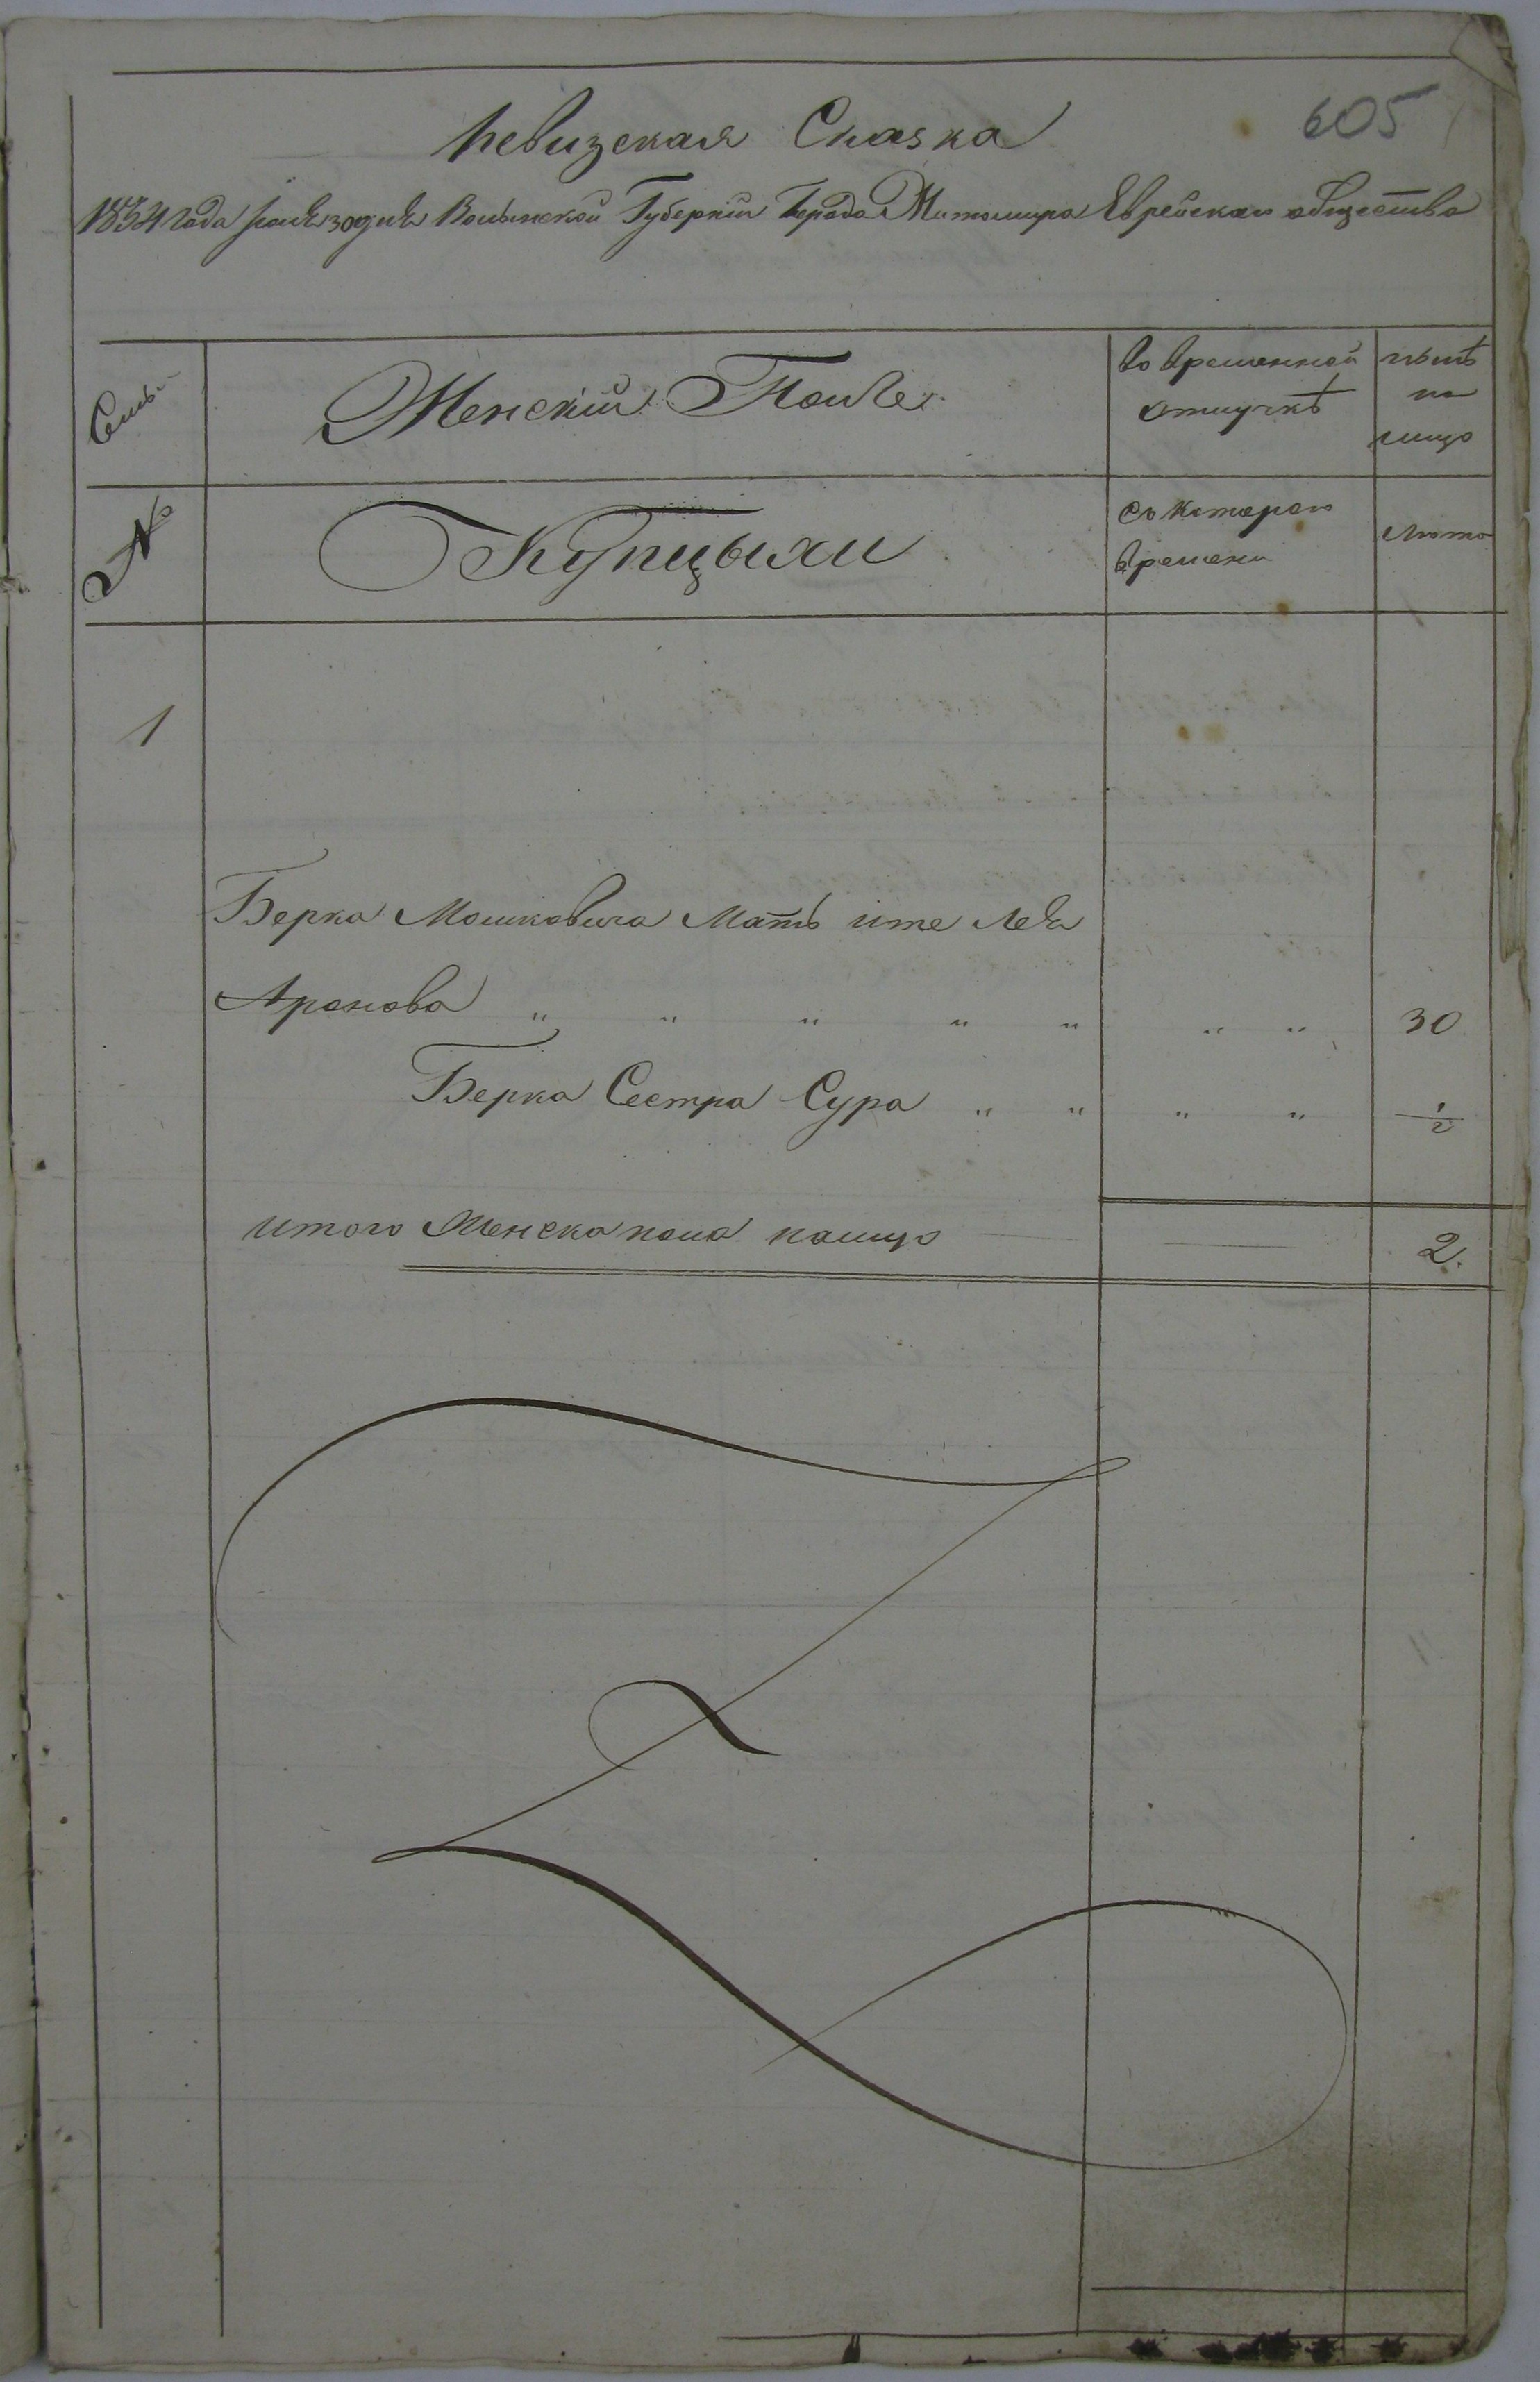 605
Ревизская Сказка
1834 года маія 30 дня Волынской Губерніи Города Житомира Еврейскаго общества
Семьи
Женскій Полъ
во временной
отлучкѣ
нынѣ
на
лицо
№
Купцыхи
съ котораго
времени
лѣта
1
Берка Мошковича Мать ите Лея
Аронова " " " " " " " 30
Берка Сестра Сура " " " " 1/2
итого Женска пола налицо 2.